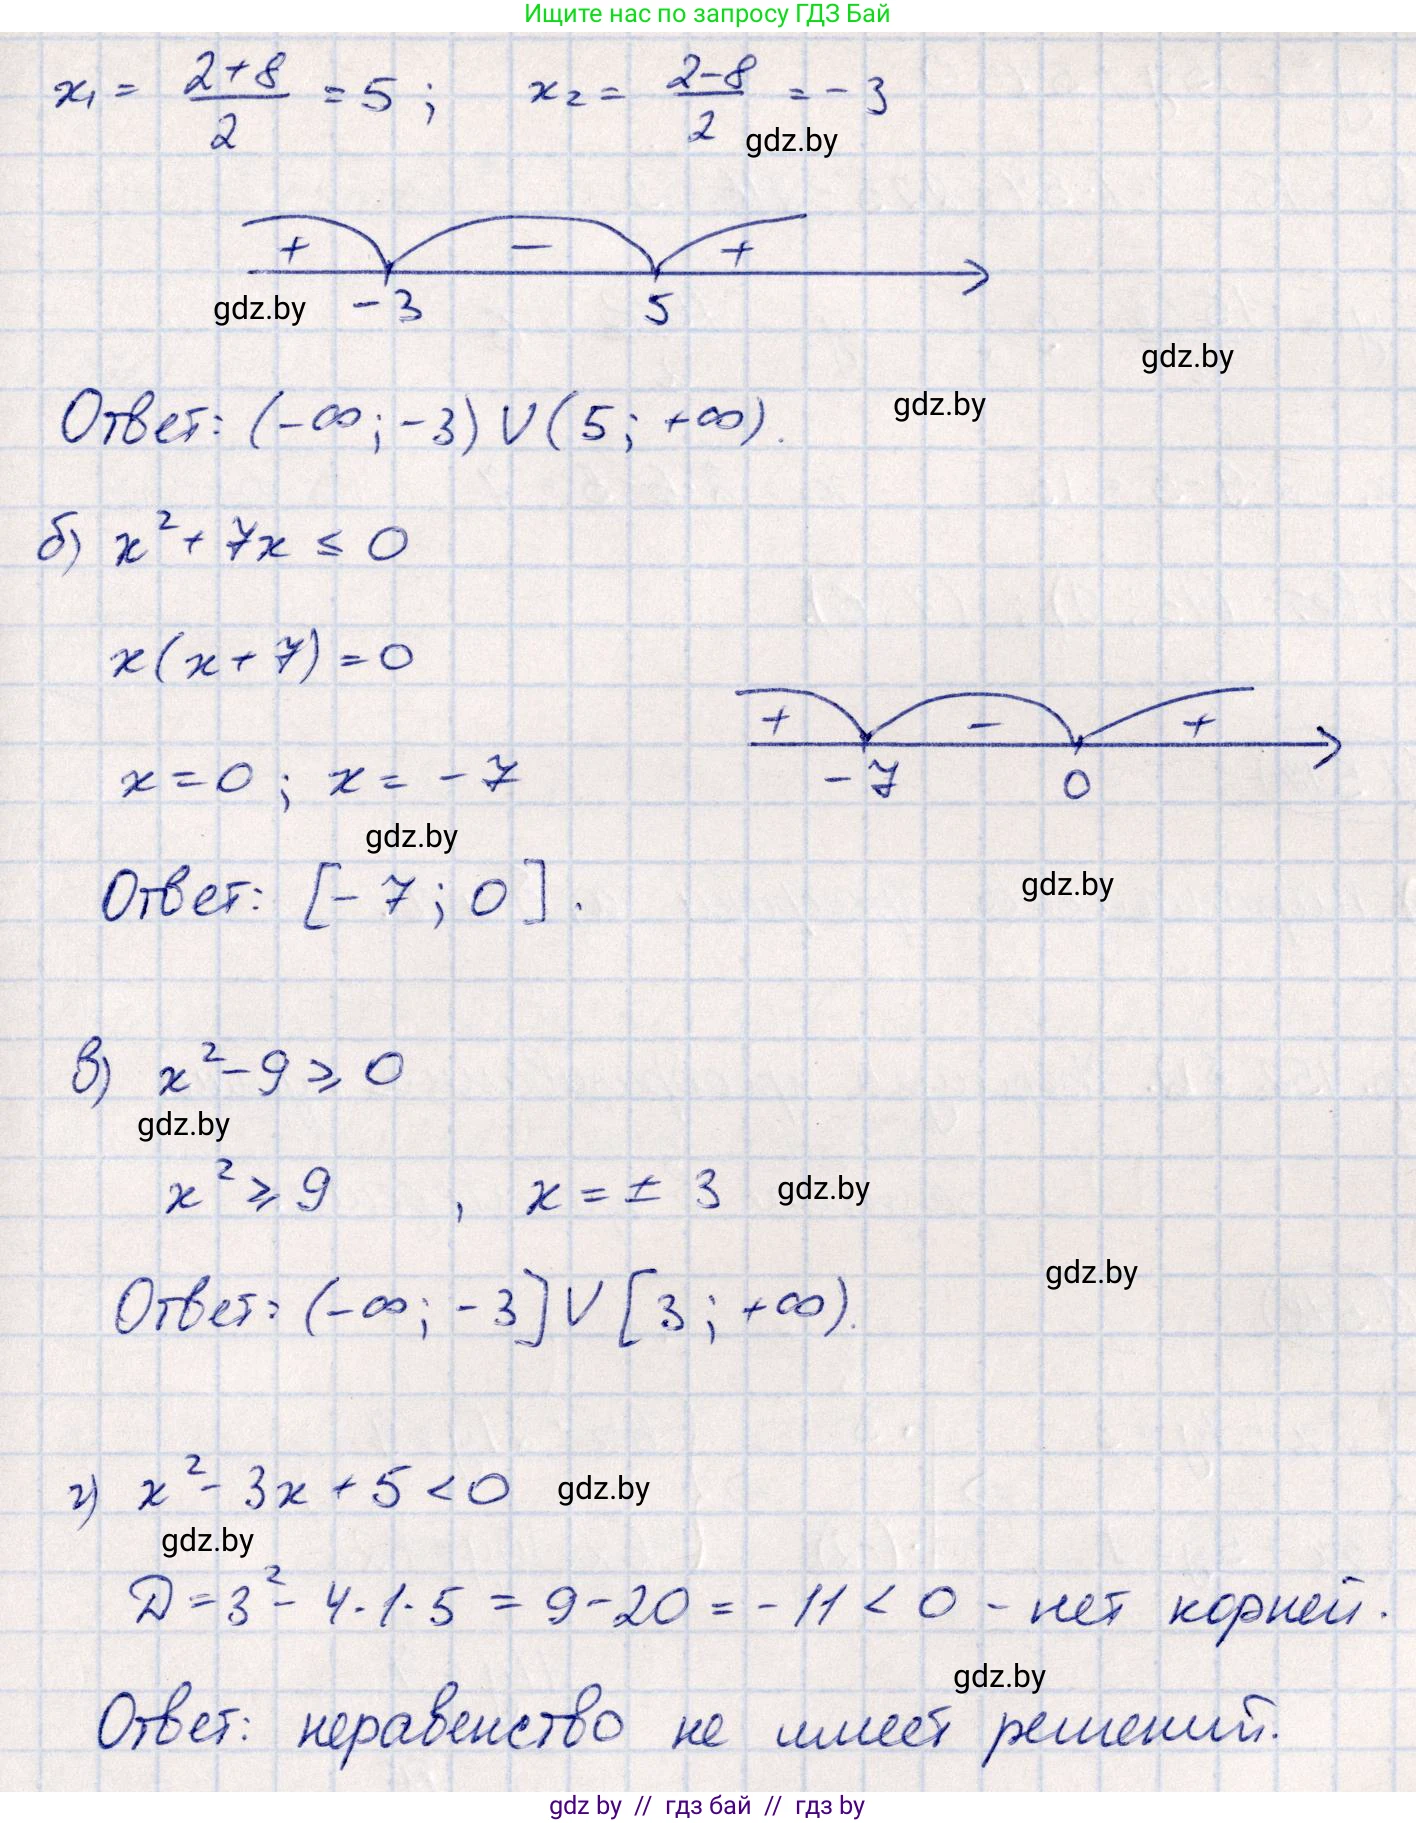 Ищите нас по запросу ГДЗ Бай
x₁ = (2+8)/2 = 5 ; x₂ = (2-8)/2 = -3
gdz.by
+ - +
gdz.by -3 5
gdz.by
Ответ: (-∞; -3) ∪ (5; +∞).
gdz.by
б) x² + 7x ≤ 0
x(x+7) = 0
+ - +
x = 0 ; x = -7
-7 0
gdz.by
gdz.by
Ответ: [-7; 0].
в) x² - 9 ⩾ 0
gdz.by
x² ⩾ 9 , x = ± 3 gdz.by
gdz.by
Ответ: (-∞; -3] ∪ [3; +∞).
г) x² - 3x + 5 < 0 gdz.by
gdz.by
D = 3² - 4·1·5 = 9 - 20 = -11 < 0 - нет корней.
gdz.by
Ответ: неравенство не имеет решений.
gdz by // гдз бай // гдз by